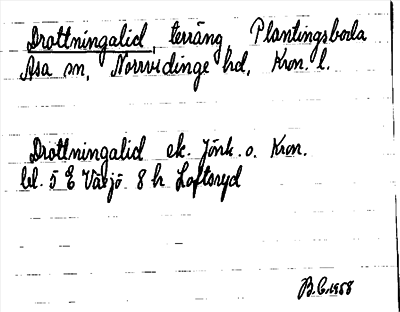 Drottningalid, terräng Plantingsboda
Asa sn, Norrvidinge hd, Kron. l.
Drottningalid ek. Jönk. o. Kron.
bl. 5 E Växjö 8 h Loftsryd
B.C. 1958